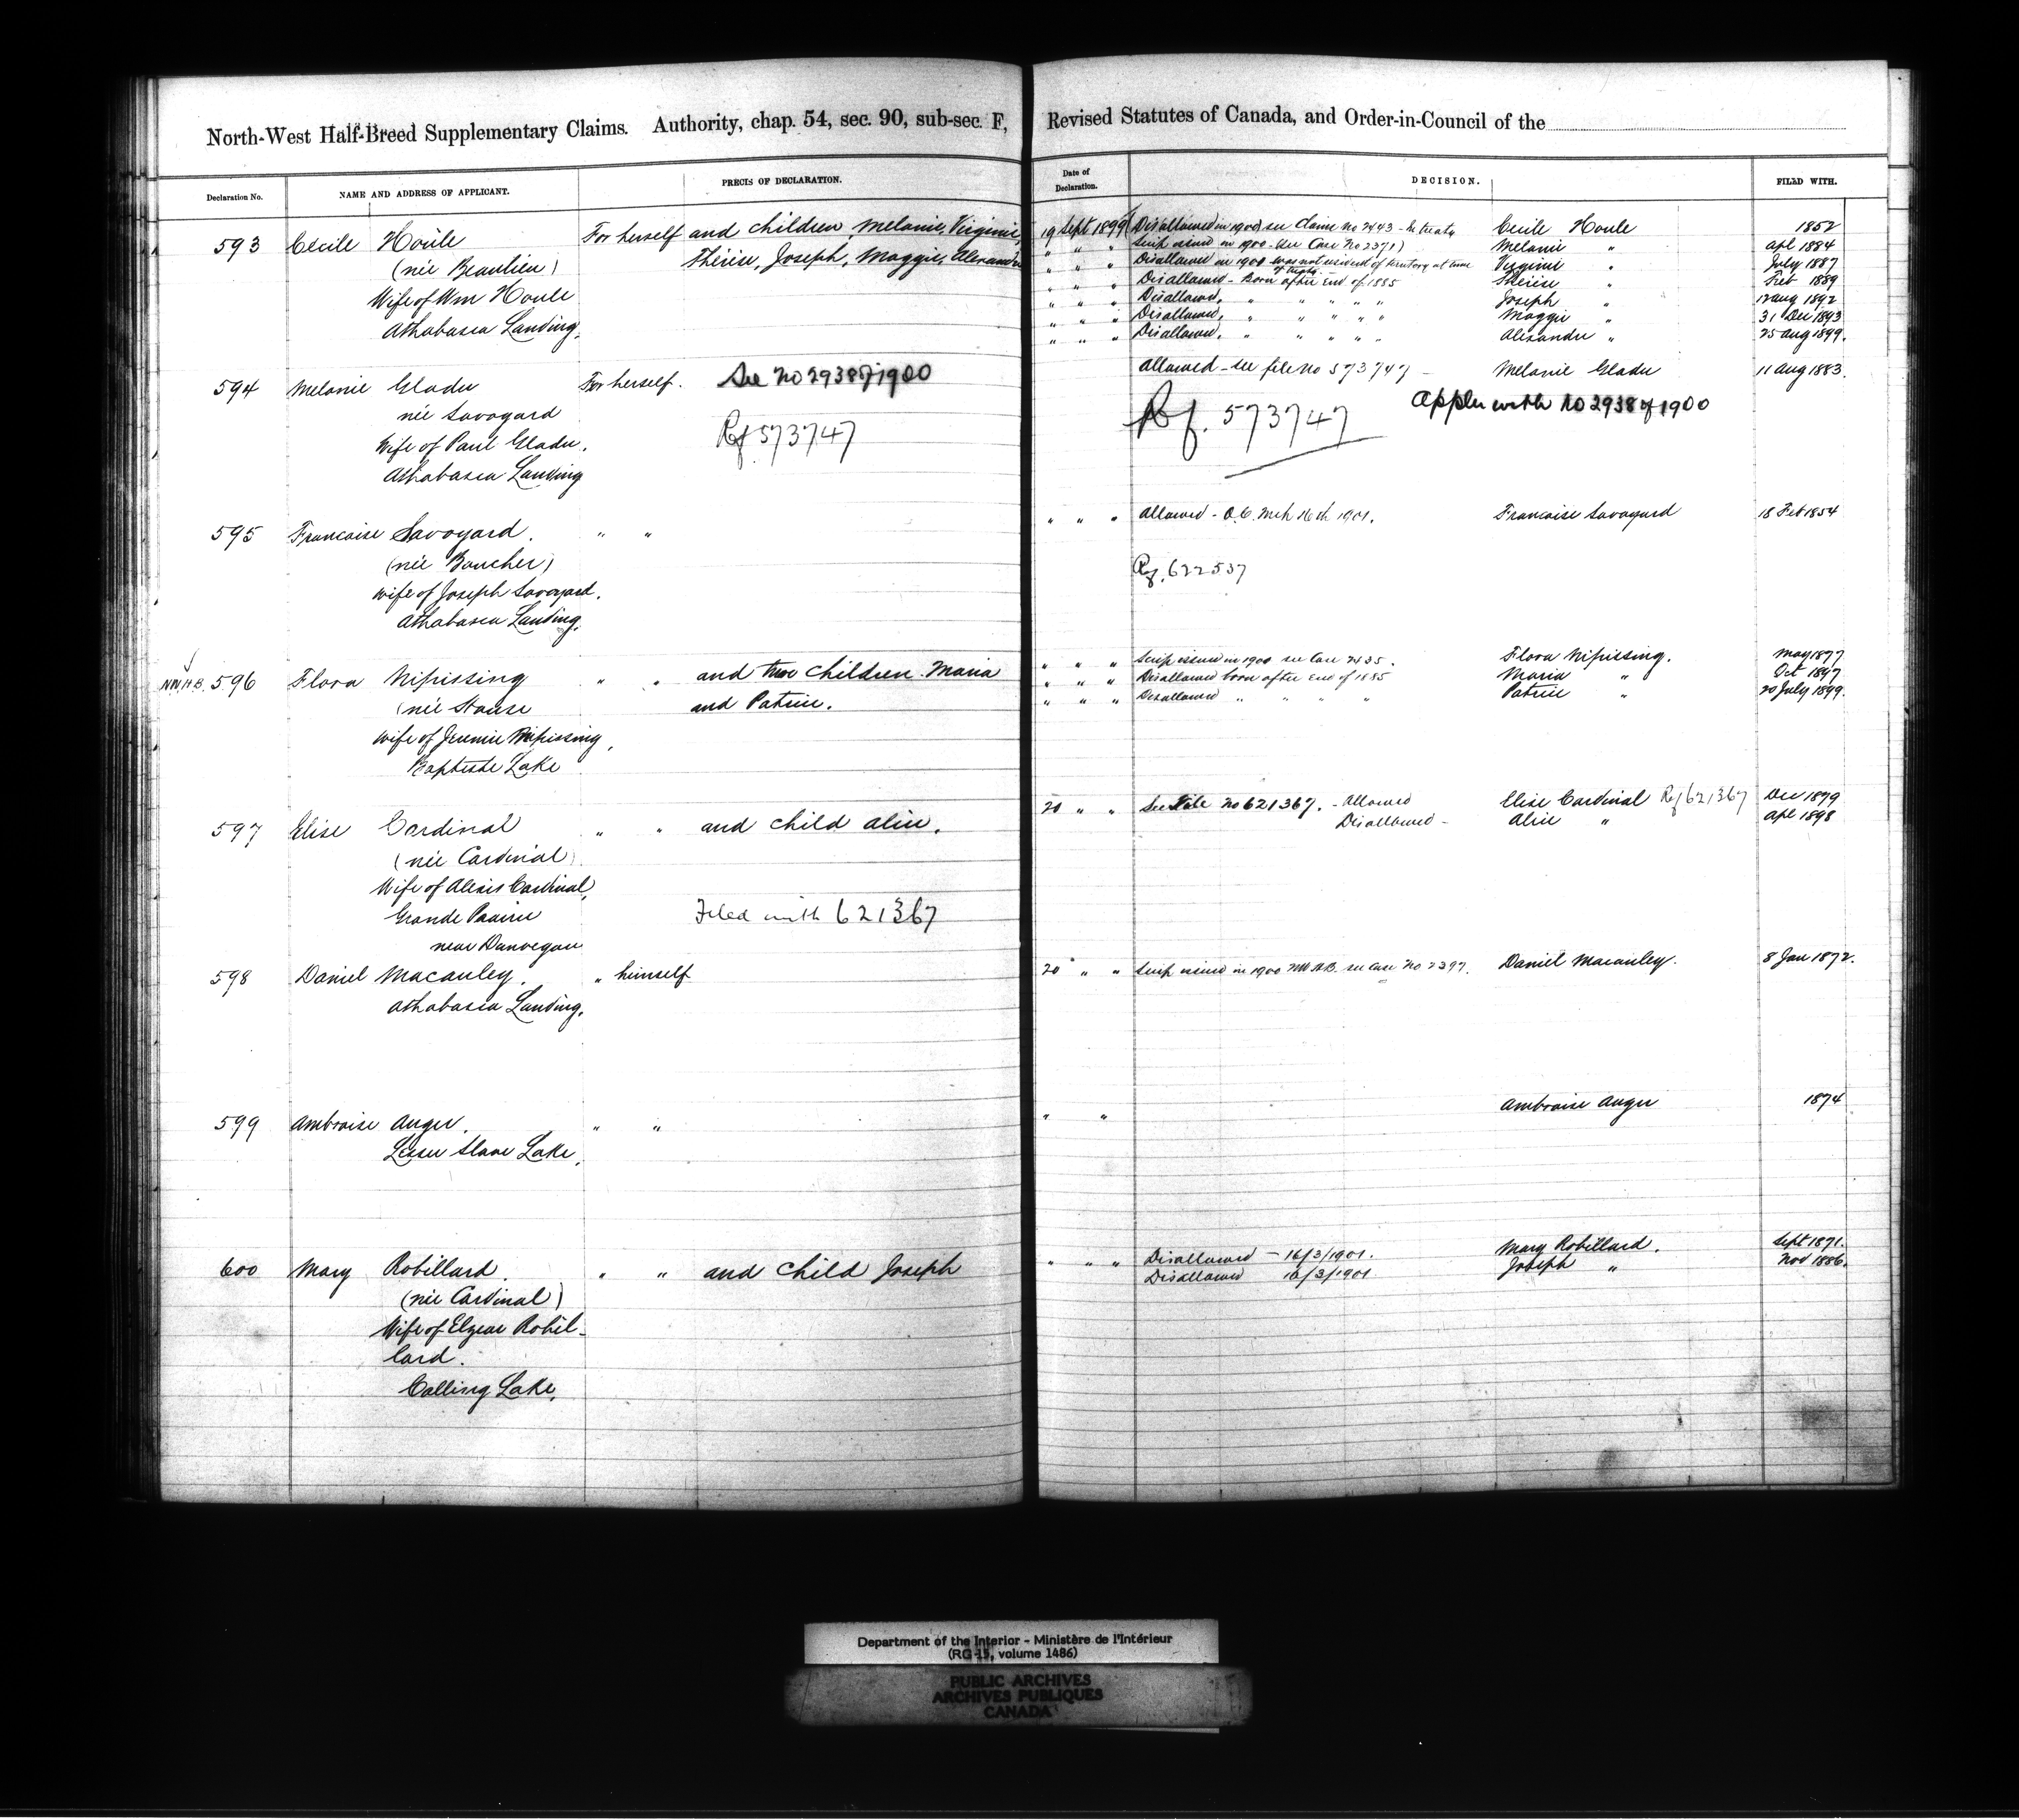 North-West Half-Breed Supplementary Claims. Authority, chap. 54, sec. 90, sub-sec. F, Revised Statutes of Canada, and Order-in-Council of the
Declaration No. NAME AND ADDRESS OF APPLICANT. PRECIS OF DECLARATION. Date of Declaration. DECISION. FILED WITH.
593 Cecile Houle For herself and children, Melanie, Virginie,
(née Beaulieu) Thérèse, Joseph, Maggie, Alexandre
Wife of Wm Houle
Athabasca Landing.
19 Sept 1899 Disallowed in 1900 see Claim No 2443 - In treaty Cecile Houle 1852
" " " Scrip issued in 1900 - see Case No 2371) Melanie " apl 1884
" " " Disallowed in 1900 was not resident of territory at time of treaty Virginie " July 1887
" " " Disallowed - Born after End of 1885 Thérèse " Feb 1889
" " " Disallowed, " " " " " Joseph " 12 aug 1892
" " " Disallowed, " " " " " Maggie " 31 Dec 1893
" " " Disallowed. " " " " " Alexandre " 25 aug 1899.
594 Melanie Gladu For herself. See No 2938 of 1900
née Savoyard
Wife of Paul Gladu. Rf 573747
Athabasca Landing
Allowed - see file No 573747 - Melanie Gladu 11 Aug 1883.
Rf. 573747 Appln with No 2938 of 1900
595 Francoise Savoyard. " "
(née Boucher)
wife of Joseph Savoyard.
Athabasca Landing.
" " " Allowed - O.C. Mch 16th 1901. Francoise Savoyard 18 Feb 1854
Rf. 622537
N.W.H.B. 596 Flora Nipissing " " and two children Maria
(née Stouse and Patrice.
wife of Jeremie Nipissing,
Baptiste Lake
" " " Scrip issued in 1900 see Case 2435. Flora Nipissing. May 1877
" " " Disallowed born after End of 1885 Maria " Oct 1897
" " " Disallowed " " " " Patrice " 20 July 1899.
597 Elise Cardinal " " and child Alice.
(née Cardinal)
Wife of Alexis Cardinal,
Grande Prairie Filed with 621367
near Dunvegan
20 " " See File No 621367. - Allowed Elise Cardinal Rf 621367 Dec 1879
Disallowed - Alice " apl 1898
598 Daniel Macauley. " himself
Athabasca Landing.
20 " " Scrip issued in 1900 NW.H.B. see Case No 2397. Daniel Macauley. 8 Jan 1872.
599 Ambroise Auger. " "
Lesser Slave Lake.
" " Ambroise Auger 1874
600 Mary Robillard. " " and child Joseph
(née Cardinal)
Wife of Elzear Robil-
lard.
Calling Lake.
" " " Disallowed - 16/3/1901. Mary Robillard. Sept 1871.
Disallowed 16/3/1901 Joseph " Nov 1886.
Department of the Interior - Ministère de l'Intérieur
(RG 15, volume 1486)
PUBLIC ARCHIVES
ARCHIVES PUBLIQUES
CANADA